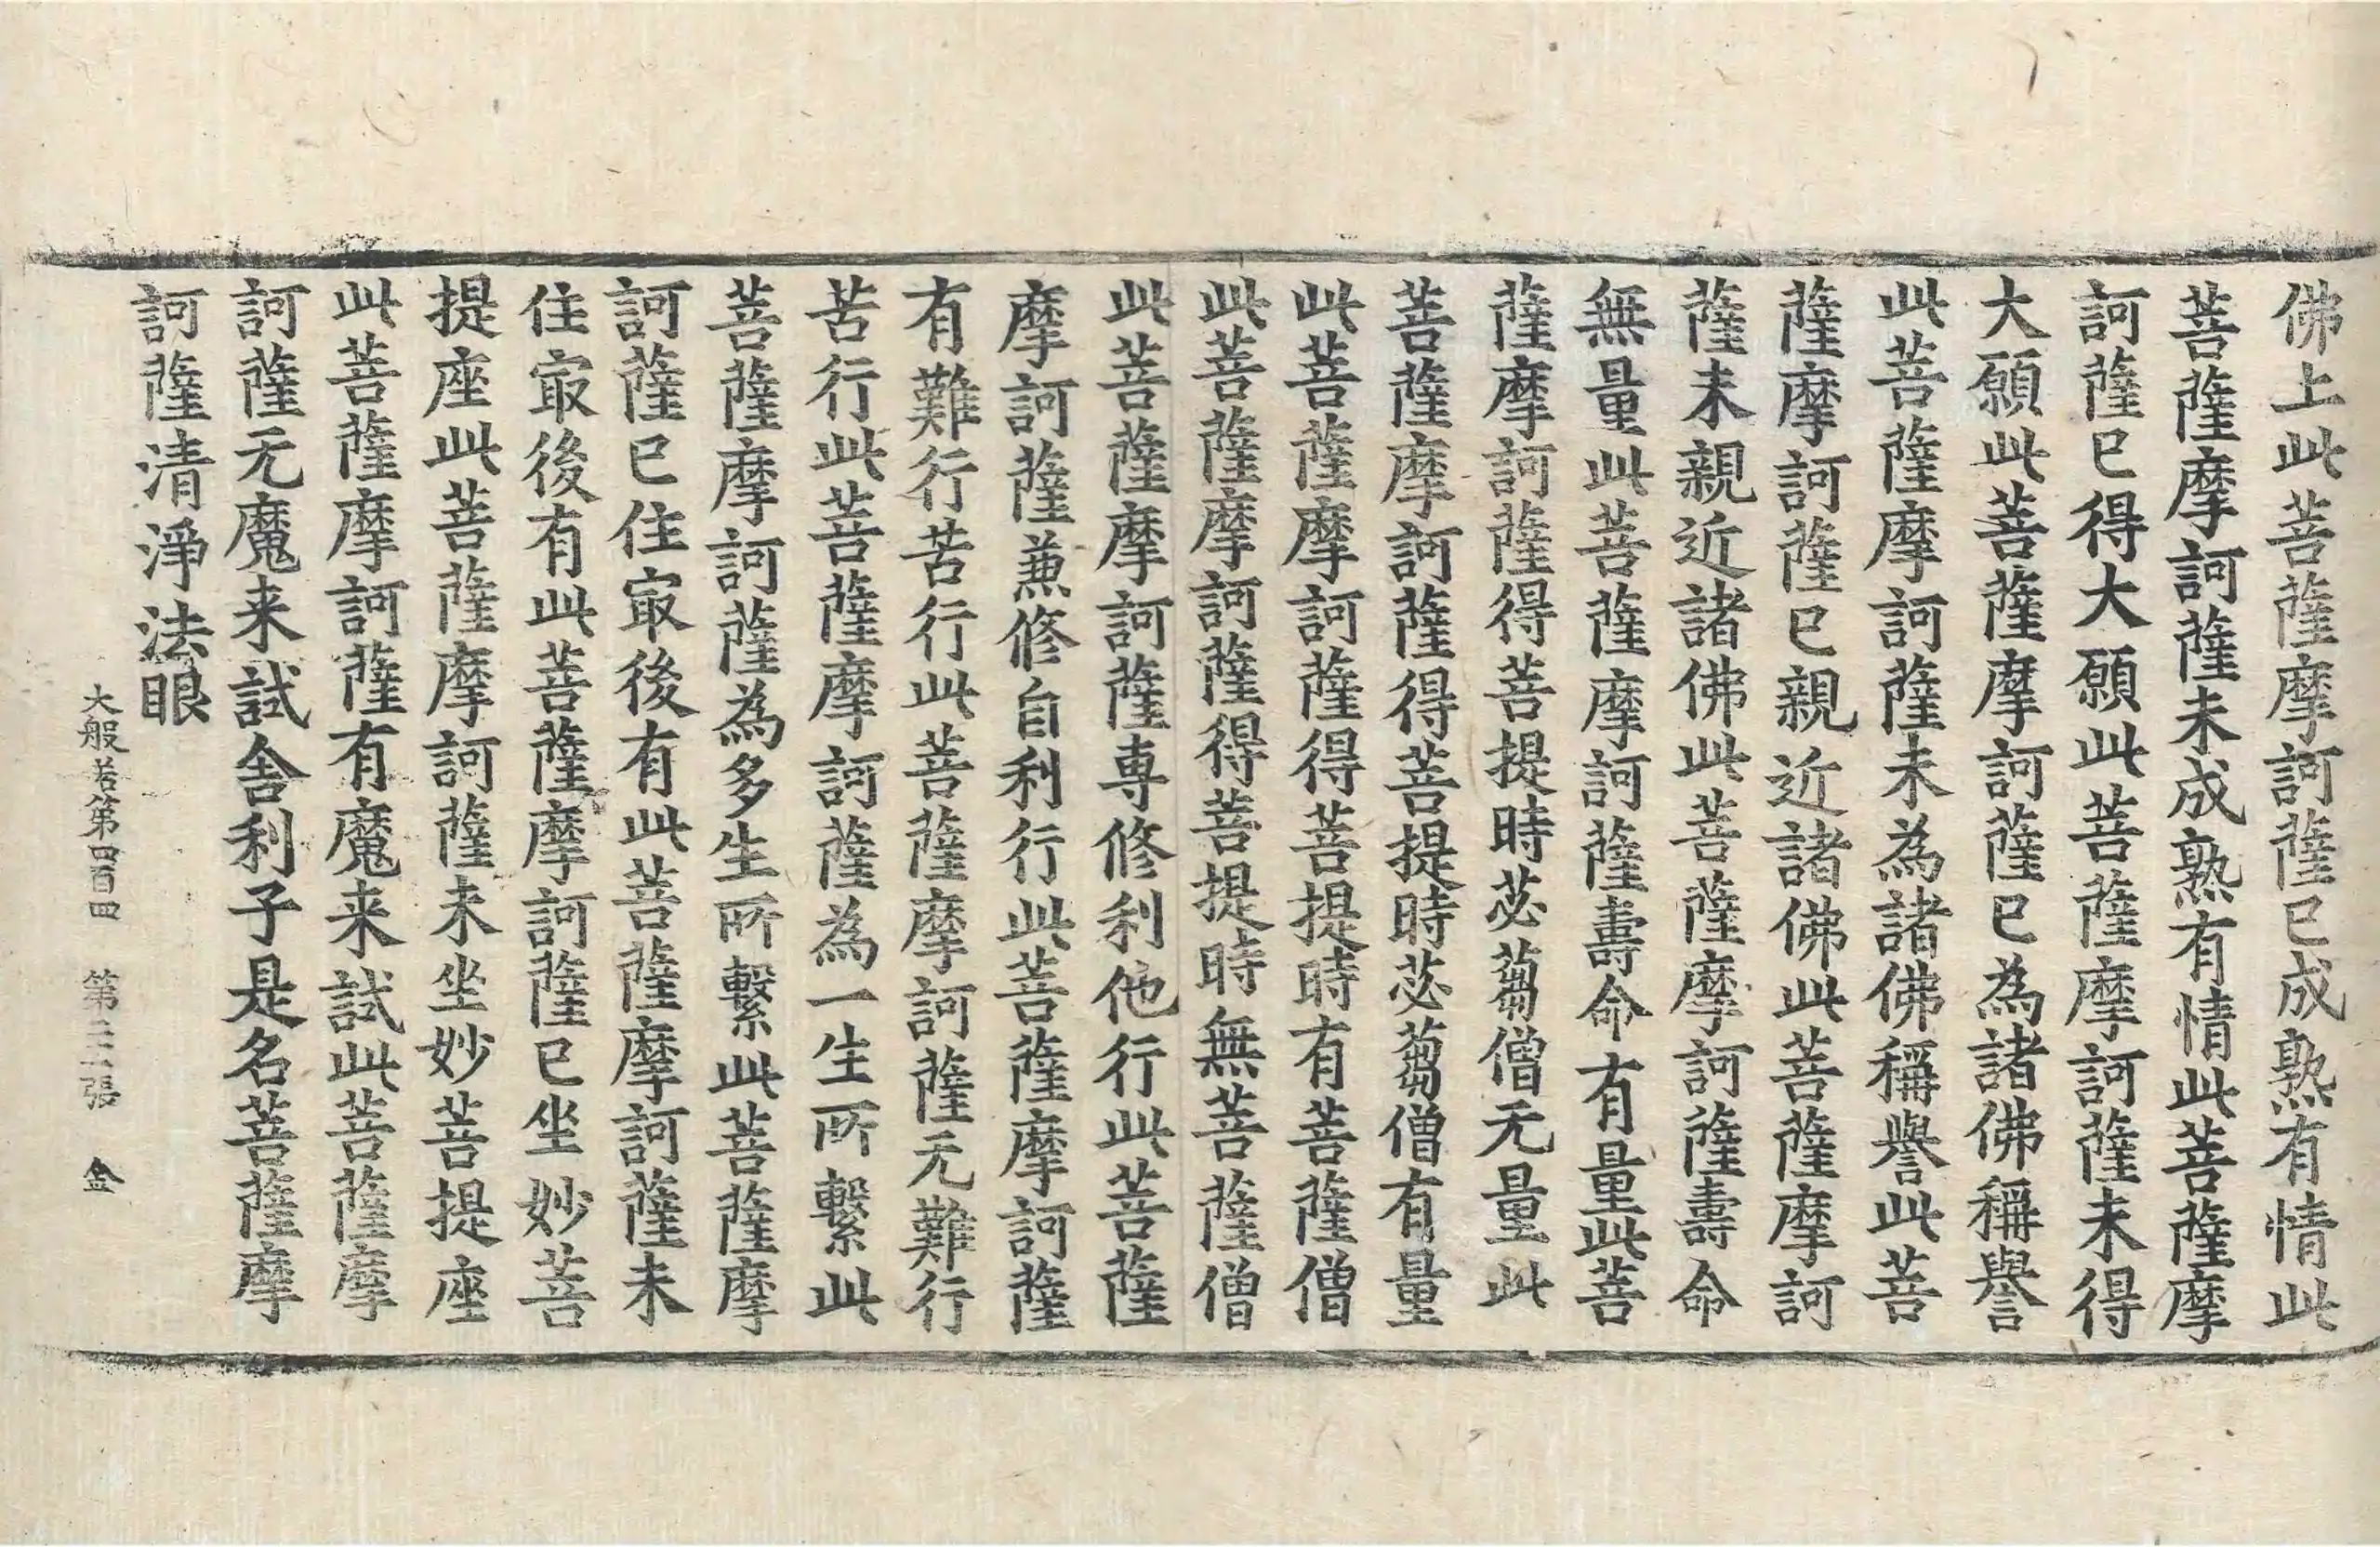 佛上此菩薩摩訶薩已成熟有情此
菩薩摩訶薩未成熟有情此菩薩摩
訶薩已得大願此菩薩摩訶薩未得
大願此菩薩摩訶薩已為諸佛稱譽
此菩薩摩訶薩未為諸佛稱譽此菩
薩摩訶薩已親近諸佛此菩薩摩訶
薩未親近諸佛此菩薩摩訶薩壽命
無量此菩薩摩訶薩壽命有量此菩
薩摩訶薩得菩提時苾蒭僧无量此
菩薩摩訶薩得菩提時苾蒭僧有量
此菩薩摩訶薩得菩提時有菩薩僧
此菩薩摩訶薩得菩提時無菩薩僧
此菩薩摩訶薩專修利他行此菩薩
摩訶薩兼修自利行此菩薩摩訶薩
有難行苦行此菩薩摩訶薩无難行
苦行此菩薩摩訶薩為一生所繫此
菩薩摩訶薩為多生所繫此菩薩摩
訶薩已住㝡後有此菩薩摩訶薩未
住㝡後有此菩薩摩訶薩已坐妙菩
提座此菩薩摩訶薩未坐妙菩提座
此菩薩摩訶薩有魔来試此菩薩摩
訶薩无魔来試舍利子是名菩薩摩
訶薩清淨法眼
大般若第四百四 第二十張 金